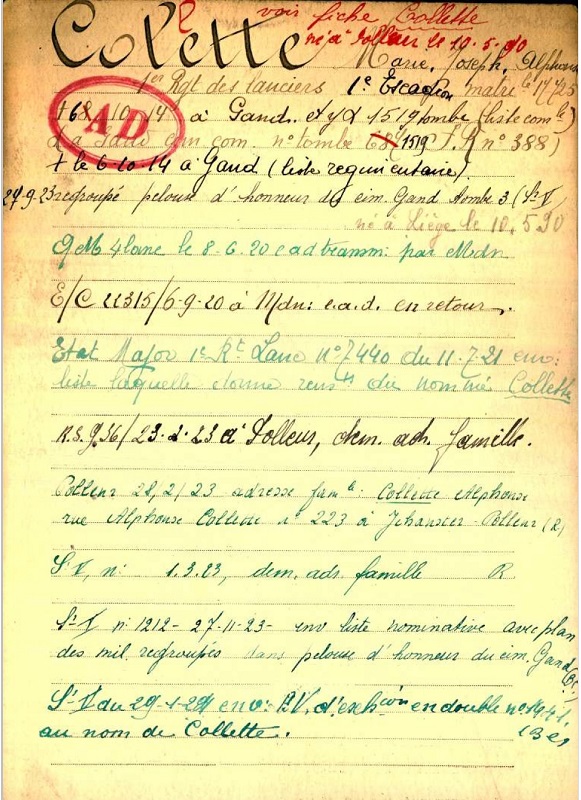 voir fiche Collette
Colette né à Polleur le 10-5-90
Marie, Joseph, Alphonse
1er Rgt des lanciers 1e Escadron matle 14725
+ 6 8 10 14 à Gand. tombe (liste com le)
AD
com. n° tombe 1519 n° 388)
+ le 6-10-14 à Gand (liste régimentaire).
24-9-23 regroupé pelouse d'honneur du cim. Gand tombe 3 (St V
né à Liège le 10.5 90
4 lanc le 8-6-20 par Mdn
E/C 22315/6-9-20 à Mdn: e.a.d. en retour.
Etat Major 1e Rt Lanc n° 7440 du 11-7-21 env:
liste laquelle donne rensts du nommé Collette
R.S. 936/23-2-23 à Polleur, dem. adr. famille.
Polleur 28/2/23 adresse famle: Collette Alphonse
rue Alphonse Collette n° 223 à Jehanster-Polleur (R)
St V, n: 1.3.23, dem. adr. famille R
St V n: 1212 - 27-11-23 - env liste nominative avec plan
des mil. regroupés dans pelouse d'honneur du cim. Gand
St V du 29-1-24 env: P.V. d'exhion en double
au nom de Collette.